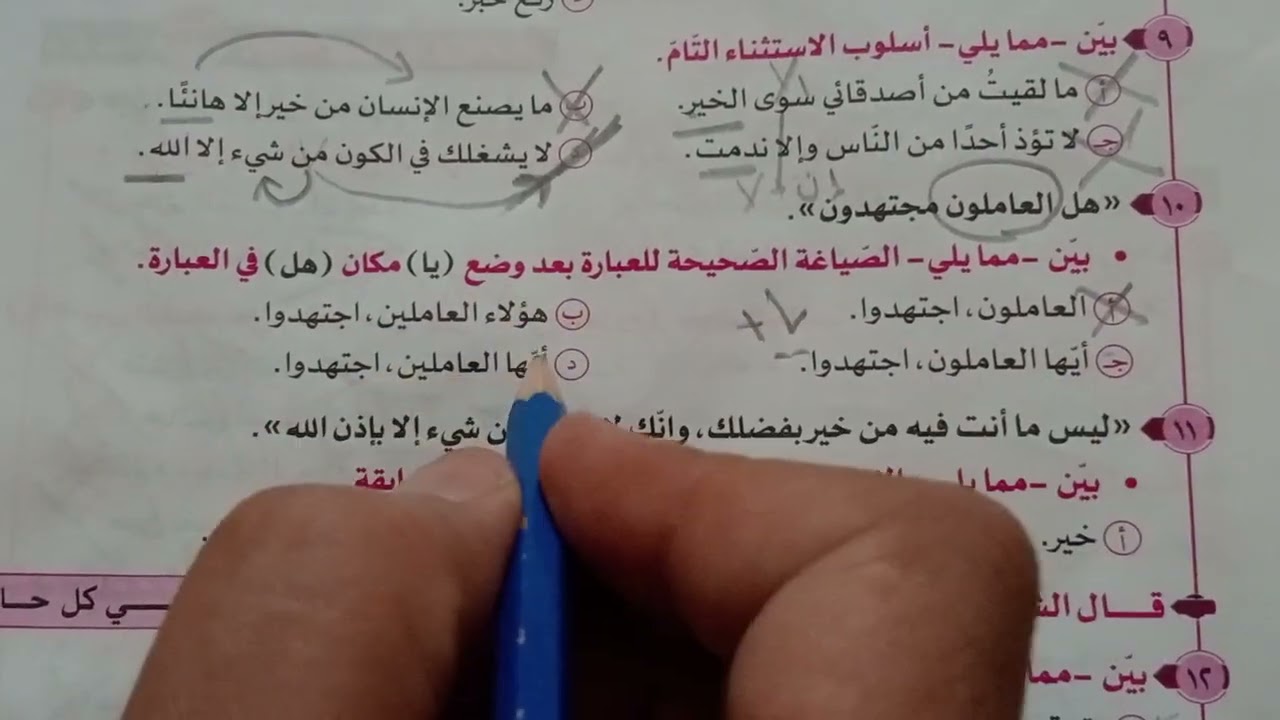 رفع خبر.
٩ بيّن -مما يلي- أسلوب الاستثناء التّامّ.
أ ما لقيتُ من أصدقائي سوى الخير.
ب ما يصنع الإنسان من خير إلا هانئًا.
جـ لا تؤذ أحدًا من النّاس وإلا ندمت.
د لا يشغلك في الكون من شيء إلا الله.
١٠ «هل العاملون مجتهدون».
• بيّن -مما يلي- الصّياغة الصّحيحة للعبارة بعد وضع (يا) مكان (هل) في العبارة.
أ العاملون، اجتهدوا.
ب هؤلاء العاملين، اجتهدوا.
جـ أيّها العاملون، اجتهدوا.
د أيّها العاملين، اجتهدوا.
١١ «ليس ما أنت فيه من خير بفضلك، وانّك شيء إلا بإذن الله».
• بيّن -مما
أ خير.
قـــال ـي كل حـا
١٢ بيّن -مما